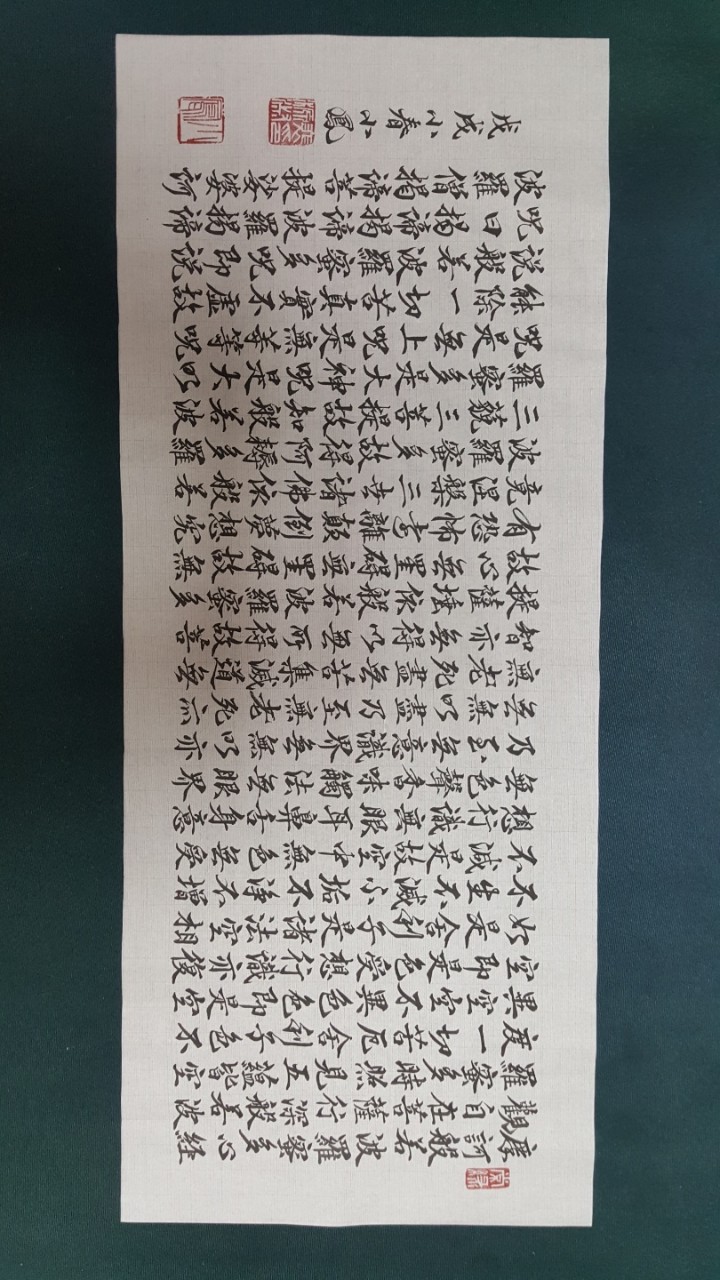 摩訶般若波羅蜜多心経
觀自在菩薩行深般若波
羅蜜多時照見五蘊皆空
度一切苦厄舍利子色不
異空空不異色色即是空
空即是色受想行識亦復
如是舍利子是諸法空相
不生不滅不垢不淨不增
不減是故空中無色無受
想行識無眼耳鼻舌身意
無色聲香味觸法無眼界
乃至無意識界無無明亦
無無明盡乃至無老死亦
無老死盡無苦集滅道無
智亦無得以無所得故菩
提薩埵依般若波羅蜜多
故心無罣碍無罣碍故無
有恐怖遠離顛倒夢想究
竟涅槃三世諸佛依般若
波羅蜜多故得阿耨多羅
三藐三菩提故知般若波
羅蜜多是大神呪是大明
呪是無上呪是無等等呪
能除一切苦真實不虛故
說般若波羅蜜多呪即說
呪曰揭諦揭諦波羅揭諦
波羅僧揭諦菩提娑婆訶
戊戌小春小鳳